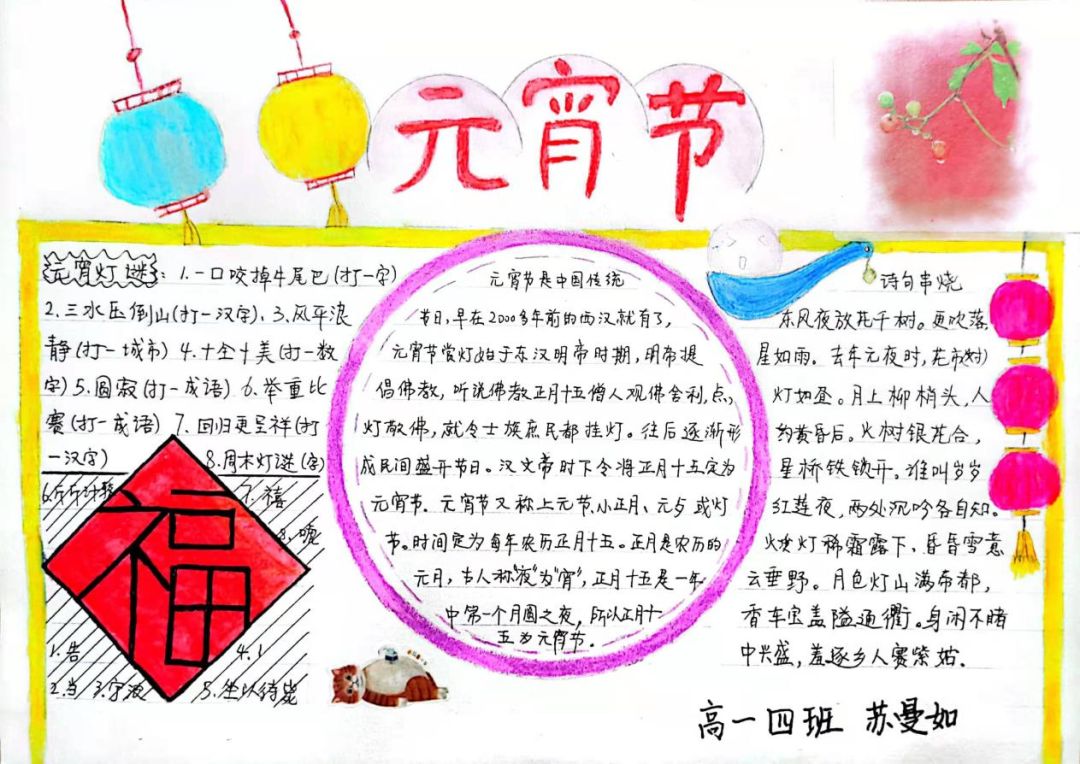 元宵节
元宵灯谜：1.一口咬掉牛尾巴(打一字)
2.三水压倒山(打一汉字)、3.风平浪
静(打一城市) 4.十全十美(打一数
字) 5.圆寂(打一成语) 6.举重比
赛(打一成语) 7.回归更呈祥(打
一汉字) 8.周末灯谜(字)
6.斤斤计较 7.禧
1.告 4.1
2.当 3.宁波 5.坐以待毙
元宵节是中国传统
节日,早在2000多年前的西汉就有了,
元宵节赏灯始于东汉明帝时期,明帝提
倡佛教,听说佛教正月十五僧人观佛舍利,点,
灯敬佛,就令士族庶民都挂灯。往后逐渐形
成民间盛开节日。汉文帝时下令将正月十五定为
元宵节.元宵节又称上元节.小正月、元夕或灯
节。时间定为每年农历正月十五。正月是农历的
元月,古人称"夜"为"宵",正月十五是一年
中第一个月圆之夜,所以正月十
五为元宵节.
诗句串烧
东风夜放花千树。更吹落,
星如雨。去年元夜时,花市
灯如昼。月上柳梢头,人
约黄昏后。火树银花合,
星桥铁锁开。谁叫岁岁
红莲夜,两处沉吟各自知。
烧灯稀霜露下、昏昏雪意
云垂野。月色灯山满帝都,
香车宝盖隘通衢。身闲不睹
中兴盛,羞逐乡人赛紫姑.
高一四班 苏曼如
福